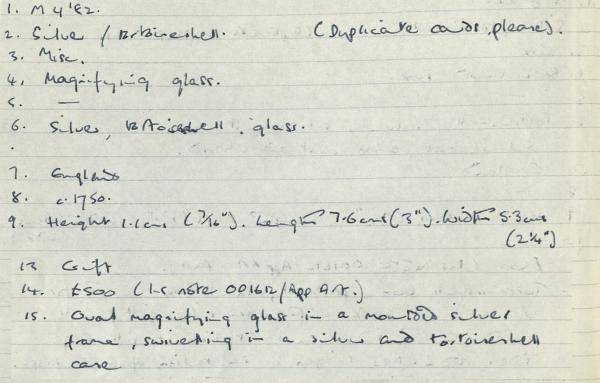 1. M 4'82.
2. Silver / Tortoiseshell. (Duplicate cards, please).
3. Misc.
4. Magnifying glass.
5. —
6. Silver, tortoiseshell, glass.
7. England
8. c.1750.
9. Height 1.1cms (7/16"). Length 7.6cms (3"). Width 5.3cms
(2¼")
13 Gift
14. £500 (note OP1612/App Art.)
15. Oval magnifying glass in a moulded silver
frame, swivelling in a silver and tortoiseshell
case